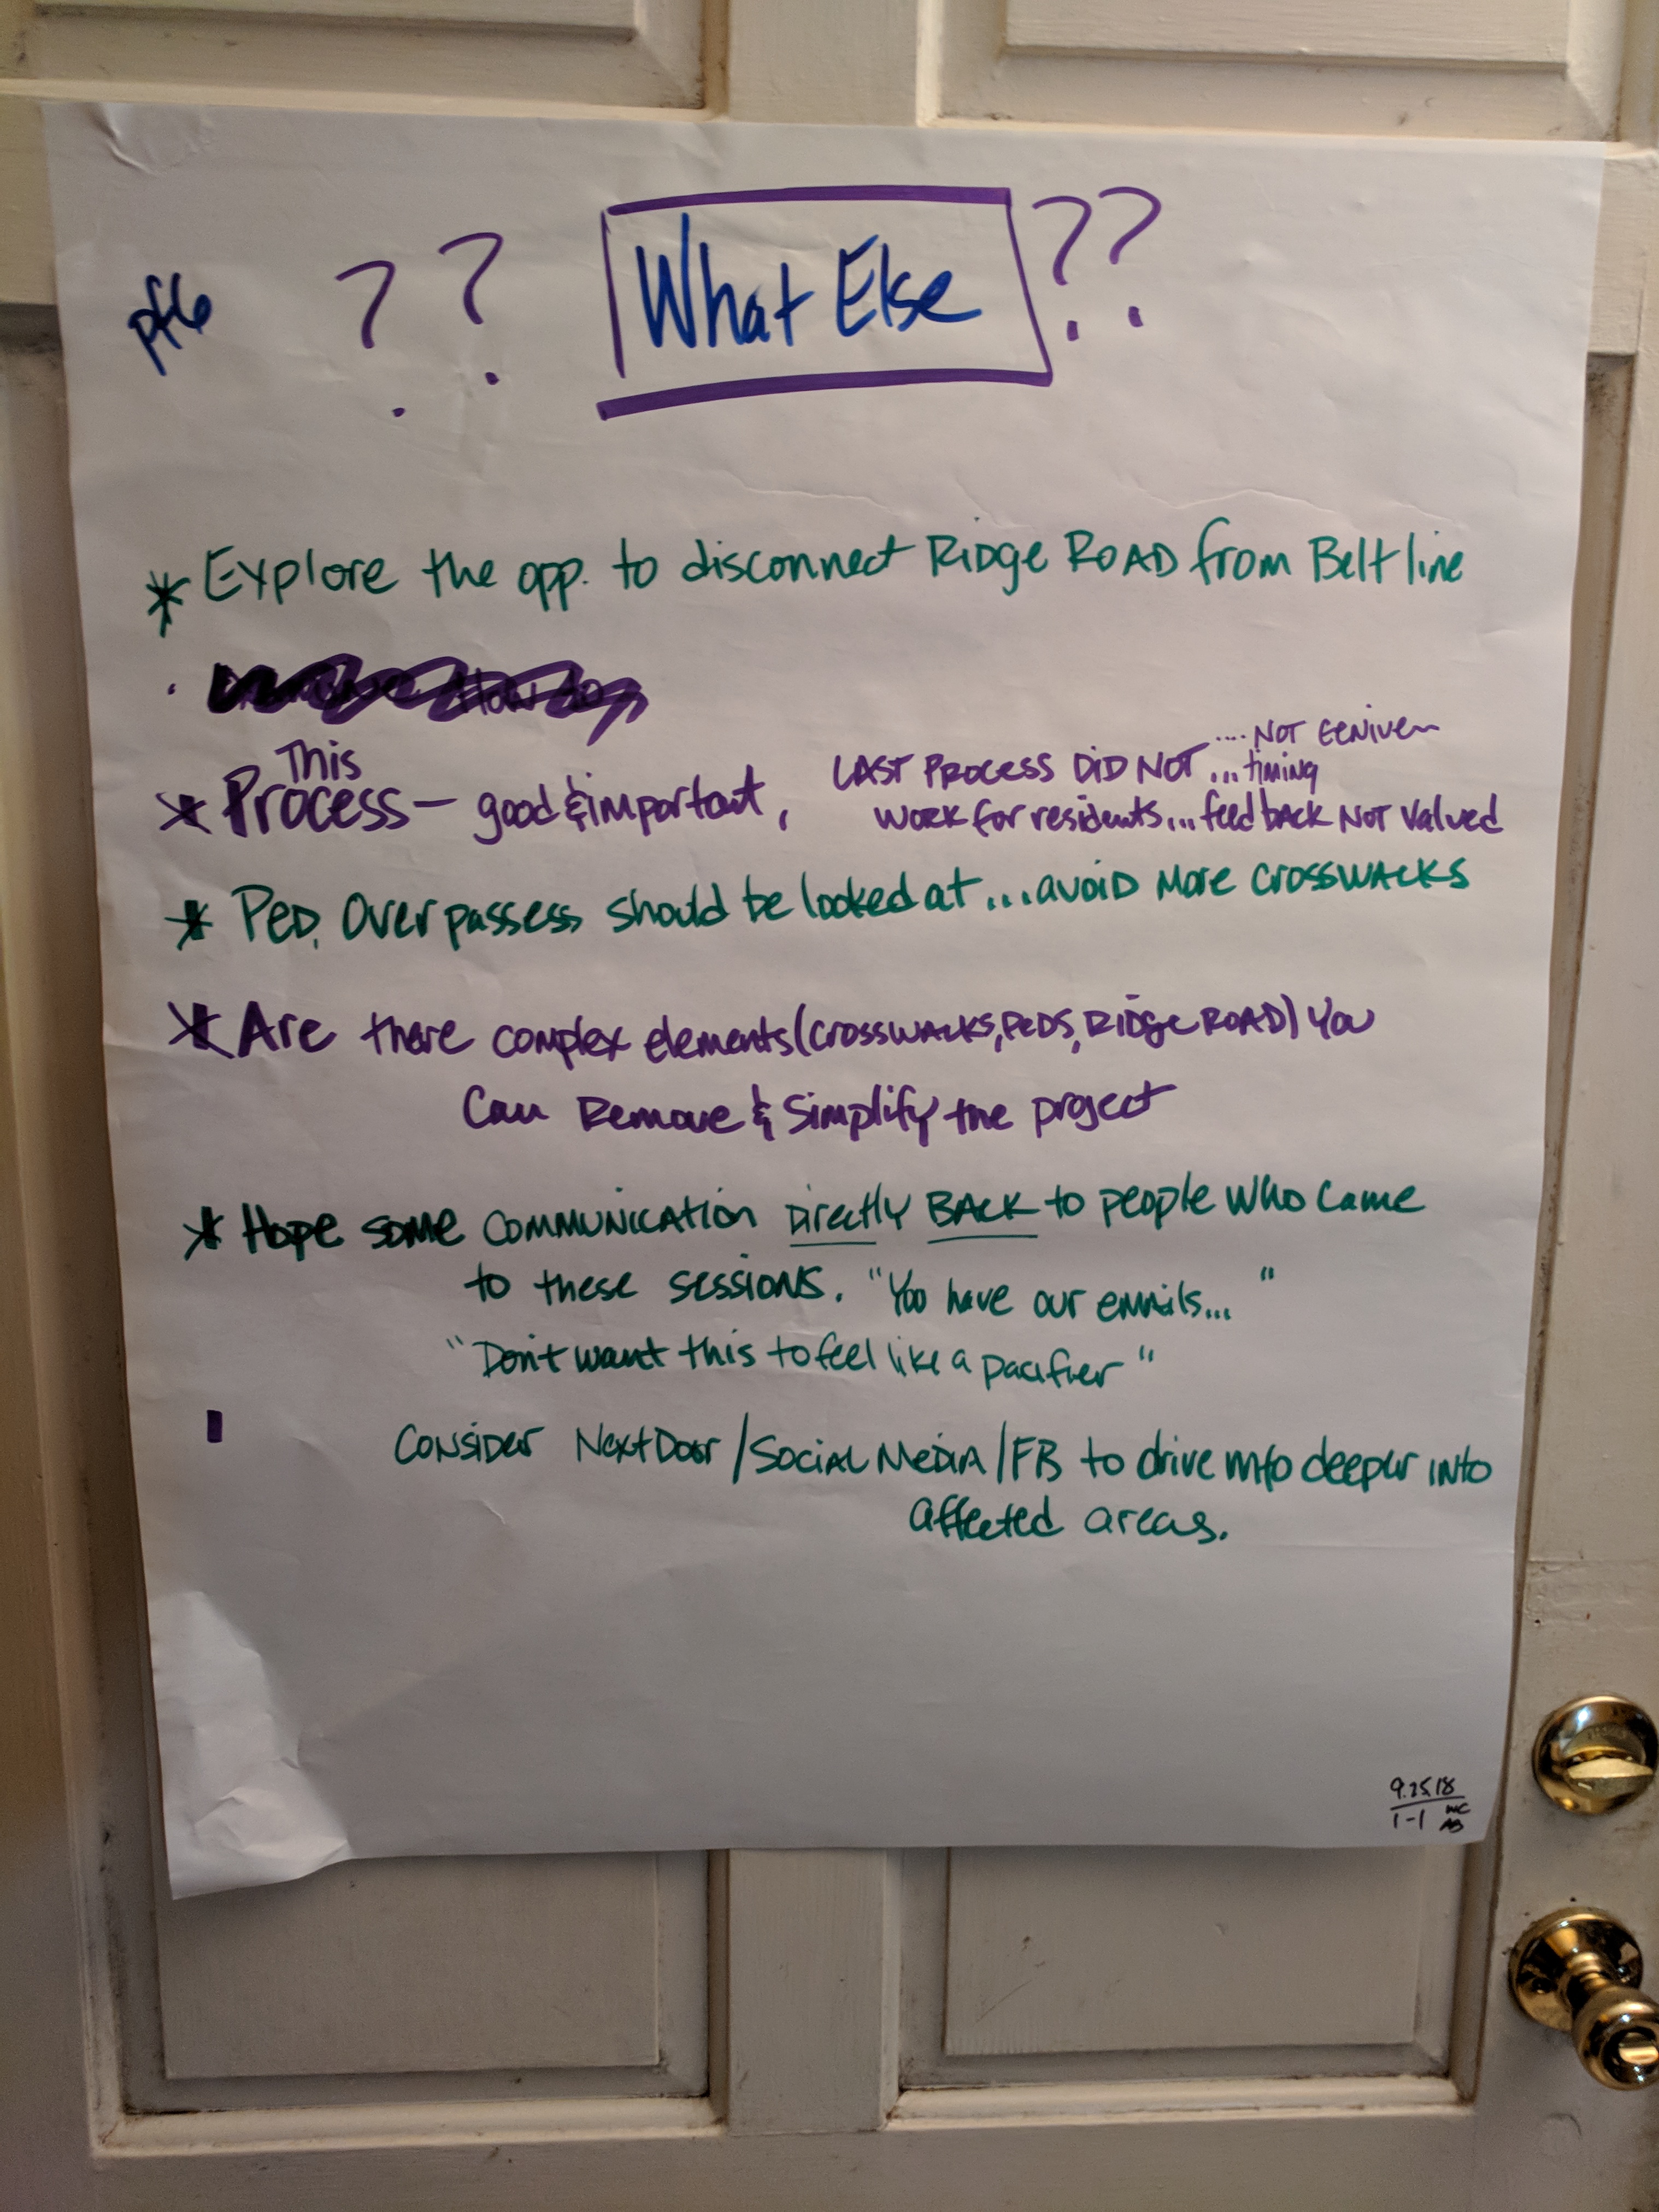 ?? What Else ??
pf6
* Explore the opp. to disconnect Ridge ROAD from Beltline
This
* Process - good & important, LAST PROCESS DID NOT ... timing
.... NOT
WORK for residents... feedback NOT valued
* PED. Overpassess should be looked at ... avoid More crosswalks
* Are there complex elements (crosswalks, PEDS, Ridge ROAD) you
Can Remove & Simplify the project
* Hope some communication Directly BACK to people who came
to these sessions. "You have our emails... "
"Don't want this to feel like a pacifier"
Consider NextDoor/Social Media/FB to drive info deeper into
affected areas.
9.25.18
1-1 MC
AB